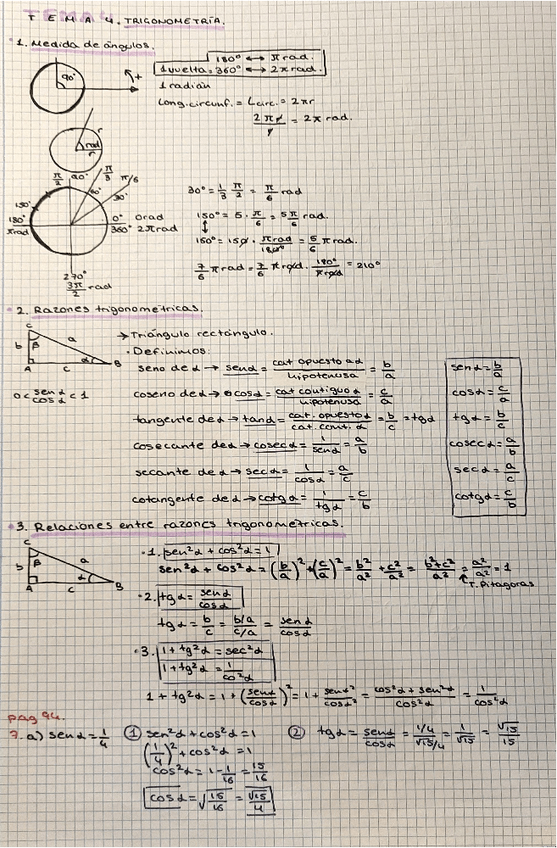 TEMA 4. TRIGONOMETRÍA.
1. Medida de ángulos.
90°
+
180° ↔ π rad.
1 vuelta = 360° ↔ 2π rad.
1 radián
Long. circunf. = Lcirc = 2πr
2πr/r = 2π rad.
r
rad
r
π/2 90° π/3 π/6
60° 30°
150°
180° π rad
0° 0 rad
360° 2π rad
270°
3π/2 rad
30° = 1/3 π/2 = π/6 rad
150° = 5 · π/6 = 5π/6 rad.
↕
150° = 150 · π rad/180° = 5/6 π rad.
7/6 π rad = 7/6 π rad · 180°/π rad = 210°
2. Razones trigonométricas.
C
b β a
A c α B
0 < sen α cos α < 1
→ Triángulo rectángulo.
· Definimos:
seno de α → sen α = cat opuesto a α/hipotenusa = b/a
coseno de α → cos α = cat contiguo α/hipotenusa = c/a
tangente de α → tan α = cat. opuesto α/cat. cont. α = b/c = tg α
cosecante de α → cosec α = 1/sen α = a/b
secante de α → sec α = 1/cos α = a/c
cotangente de α → cotg α = 1/tg α = c/b
sen α = b/a
cos α = c/a
tg α = b/c
cosec α = a/b
sec α = a/c
cotg α = c/b
3. Relaciones entre razones trigonométricas.
C
b β a
A c α B
· 1. sen²α + cos²α = 1
sen²α + cos²α = (b/a)² + (c/a)² = b²/a² + c²/a² = b²+c²/a² = a²/a² = 1
T. Pitágoras
· 2. tg α = sen α/cos α
tg α = b/c = b/a/c/a = sen α/cos α
· 3. 1 + tg²α = sec²α
1 + tg²α = 1/co²α
1 + tg²α = 1 + (sen α/cos α)² = 1 + sen α²/cos α² = cos²α + sen²α/cos²α = 1/cos²α
pag 94.
7. a) sen α = 1/4
① sen²α + cos²α = 1
(1/4)² + cos²α = 1
cos²α = 1 - 1/16 = 15/16
cos α = √15/16 = √15/4
② tg α = sen α/cos α = 1/4/√15/4 = 1/√15 = √15/15